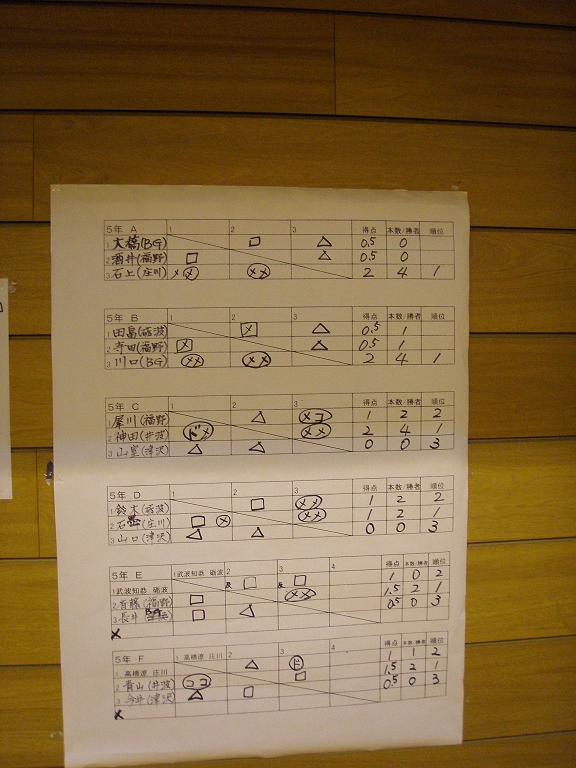 5年 A 1 2 3 得点 本数/勝者 順位
1 大橋(BG) □ △ 0.5 0
2 酒井(福野) □ △ 0.5 0
3 石上(庄川) メメ メメ 2 4 1
5年 B 1 2 3 得点 本数/勝者 順位
1 田畠(砺波) メ △ 0.5 1
2 寺田(福野) メ △ 0.5 1
3 川口(BG) メメ メメ 2 4 1
5年 C 1 2 3 得点 本数/勝者 順位
1 犀川(福野) △ メコ 1 2 2
2 神田(井波) ドメ メメ 2 4 1
3 山室(津沢) △ △ 0 0 3
5年 D 1 2 3 得点 本数/勝者 順位
1 鈴木(砺波) □ メメ 1 2 2
2 石黒(庄川) □ メ メメ 1 2 1
3 山口(津沢) △ △ 0 0 3
5年 E 1 武波知恭 砺波 2 3 4 得点 本数/勝者 順位
1 武波知恭 砺波 □ □ 1 0 2
2 斉藤(福野) □ メメ 1.5 2 1
3 長井 □ △ 0.5 0 3
×
5年 F 1 高橋遼 庄川 2 3 4 得点 本数/勝者 順位
1 高橋遼 庄川 △ ド 1 1 2
2 青山(井波) ココ □ 1.5 2 1
3 今井(津沢) △ □ 0.5 0 3
×